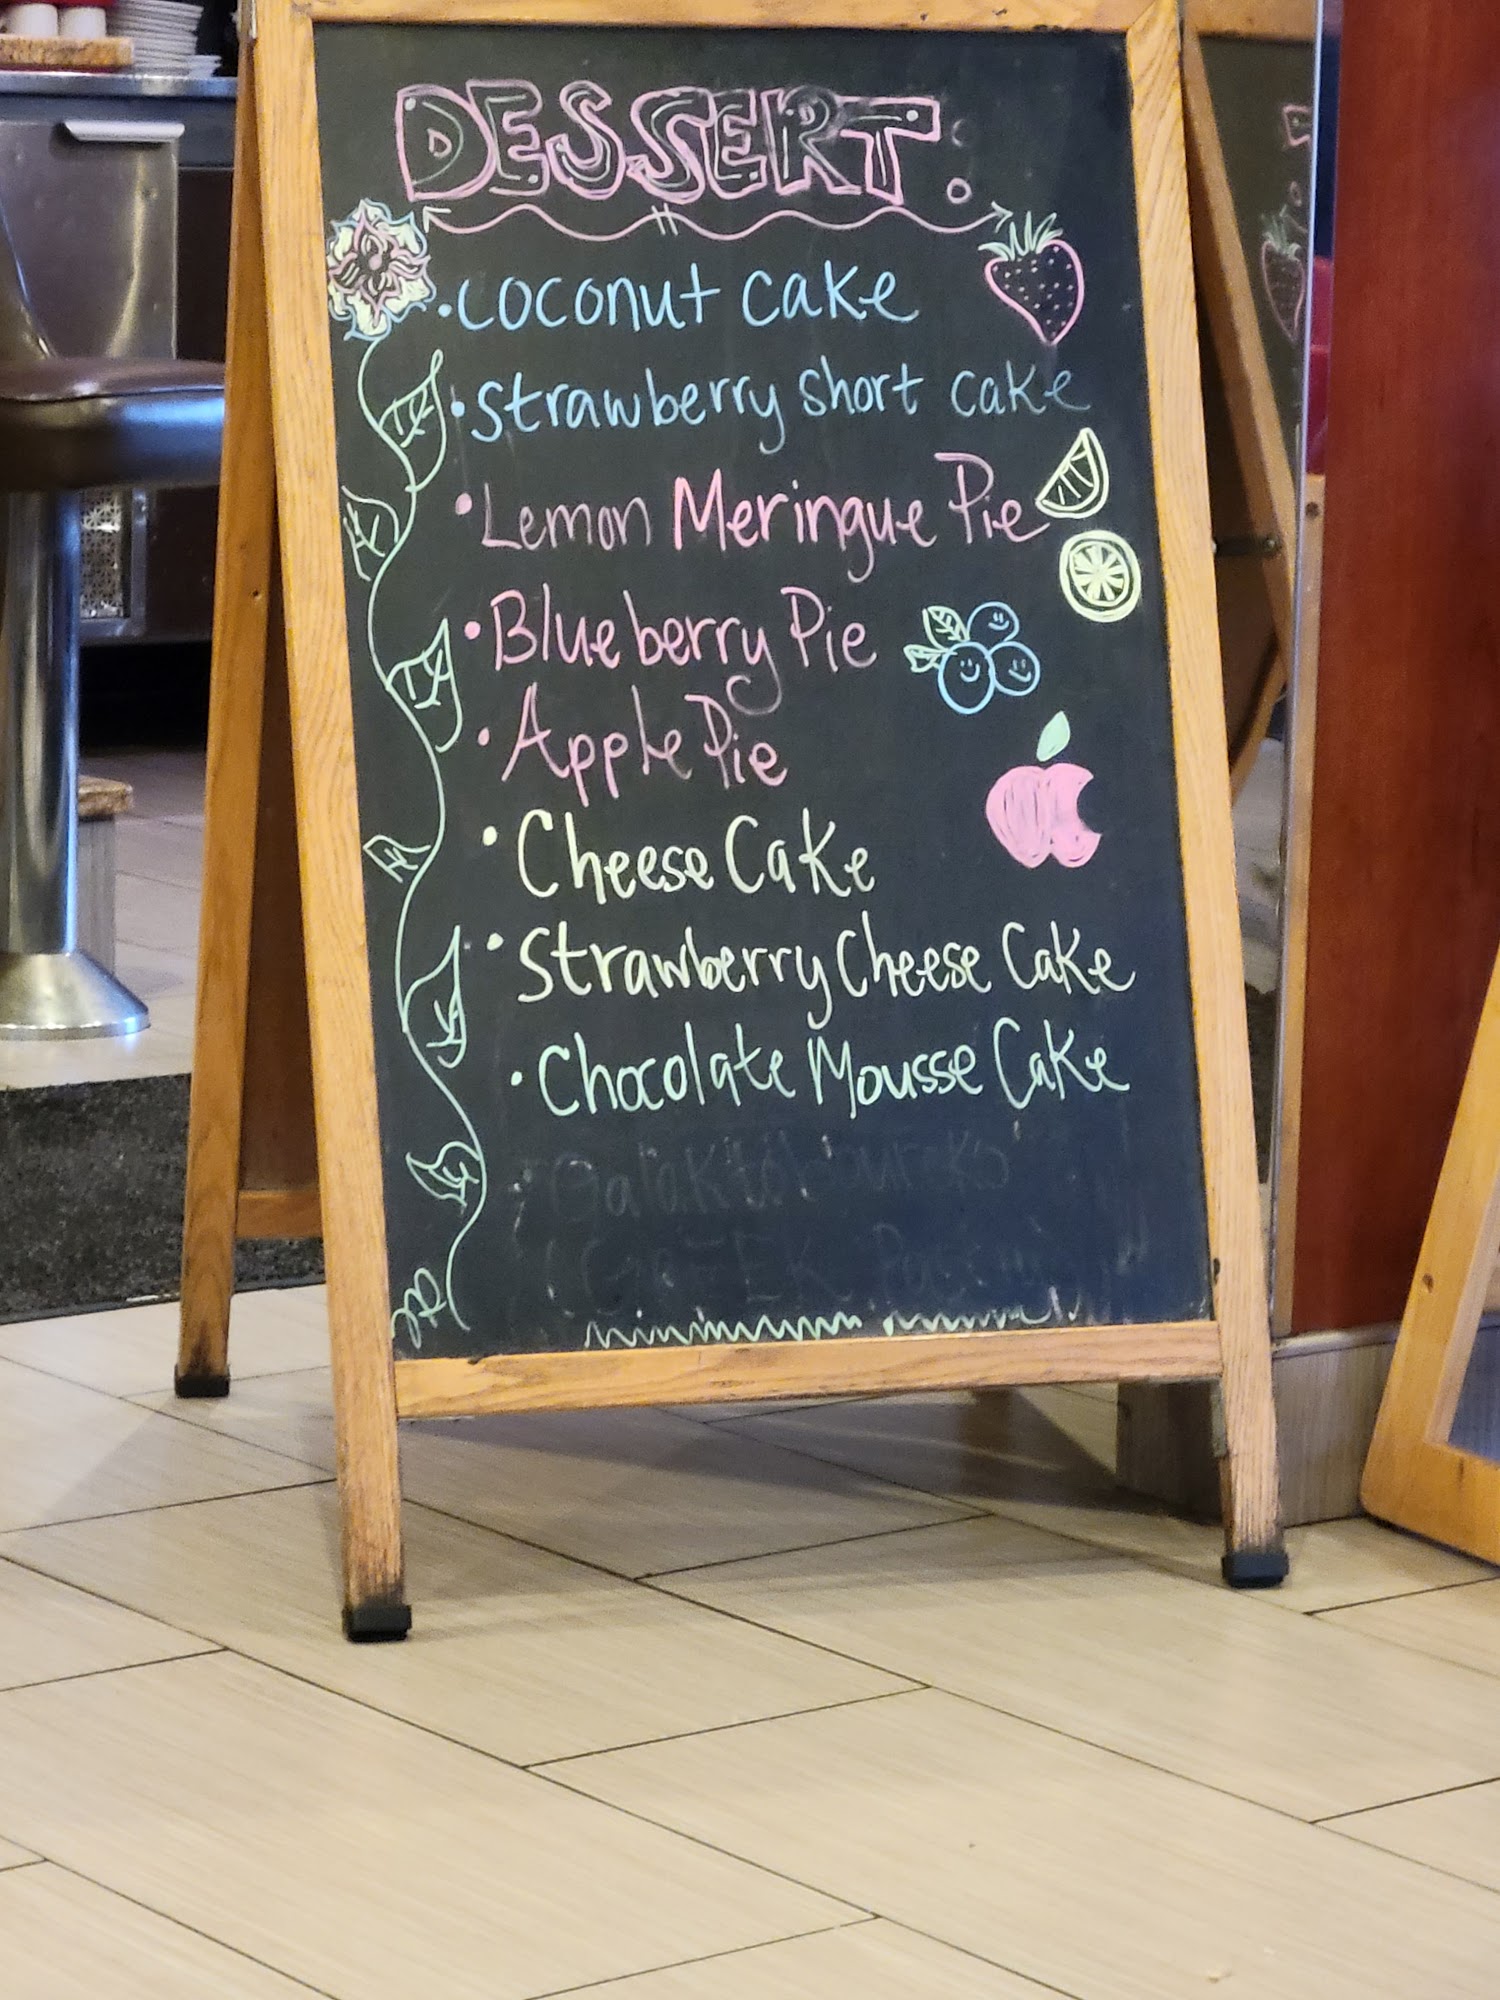 DESSERT:
• coconut cake
• strawberry short cake
• Lemon Meringue Pie
• Blueberry Pie
• Apple Pie
• Cheese Cake
• Strawberry Cheese Cake
• Chocolate Mousse Cake